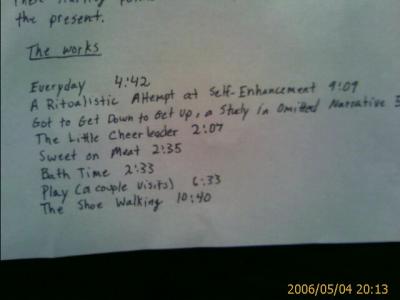 the present.
The works
Everyday 4:42
A Ritualistic Attempt at Self-Enhancement 9:09
Got to Get Down to Get Up, a Study in Omitted Narrative
The Little Cheerleader 2:07
Sweet on Meat 2:35
Bath Time 2:33
Play (a couple visits) 6:33
The Shoe Walking 10:40
2006/05/04 20:13